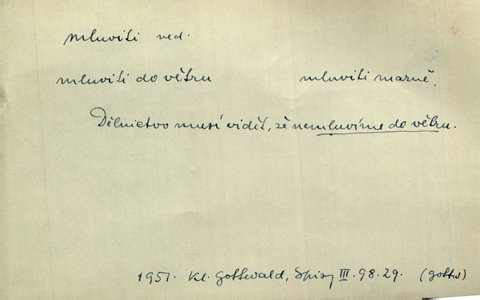 mluviti ned.
mluviti do větru mluviti marně.
Dělnictvo musí vidět, že nemluvíme do větru.
1951. Kl. Gottwald, Spisy III. 98.29. (gottw)